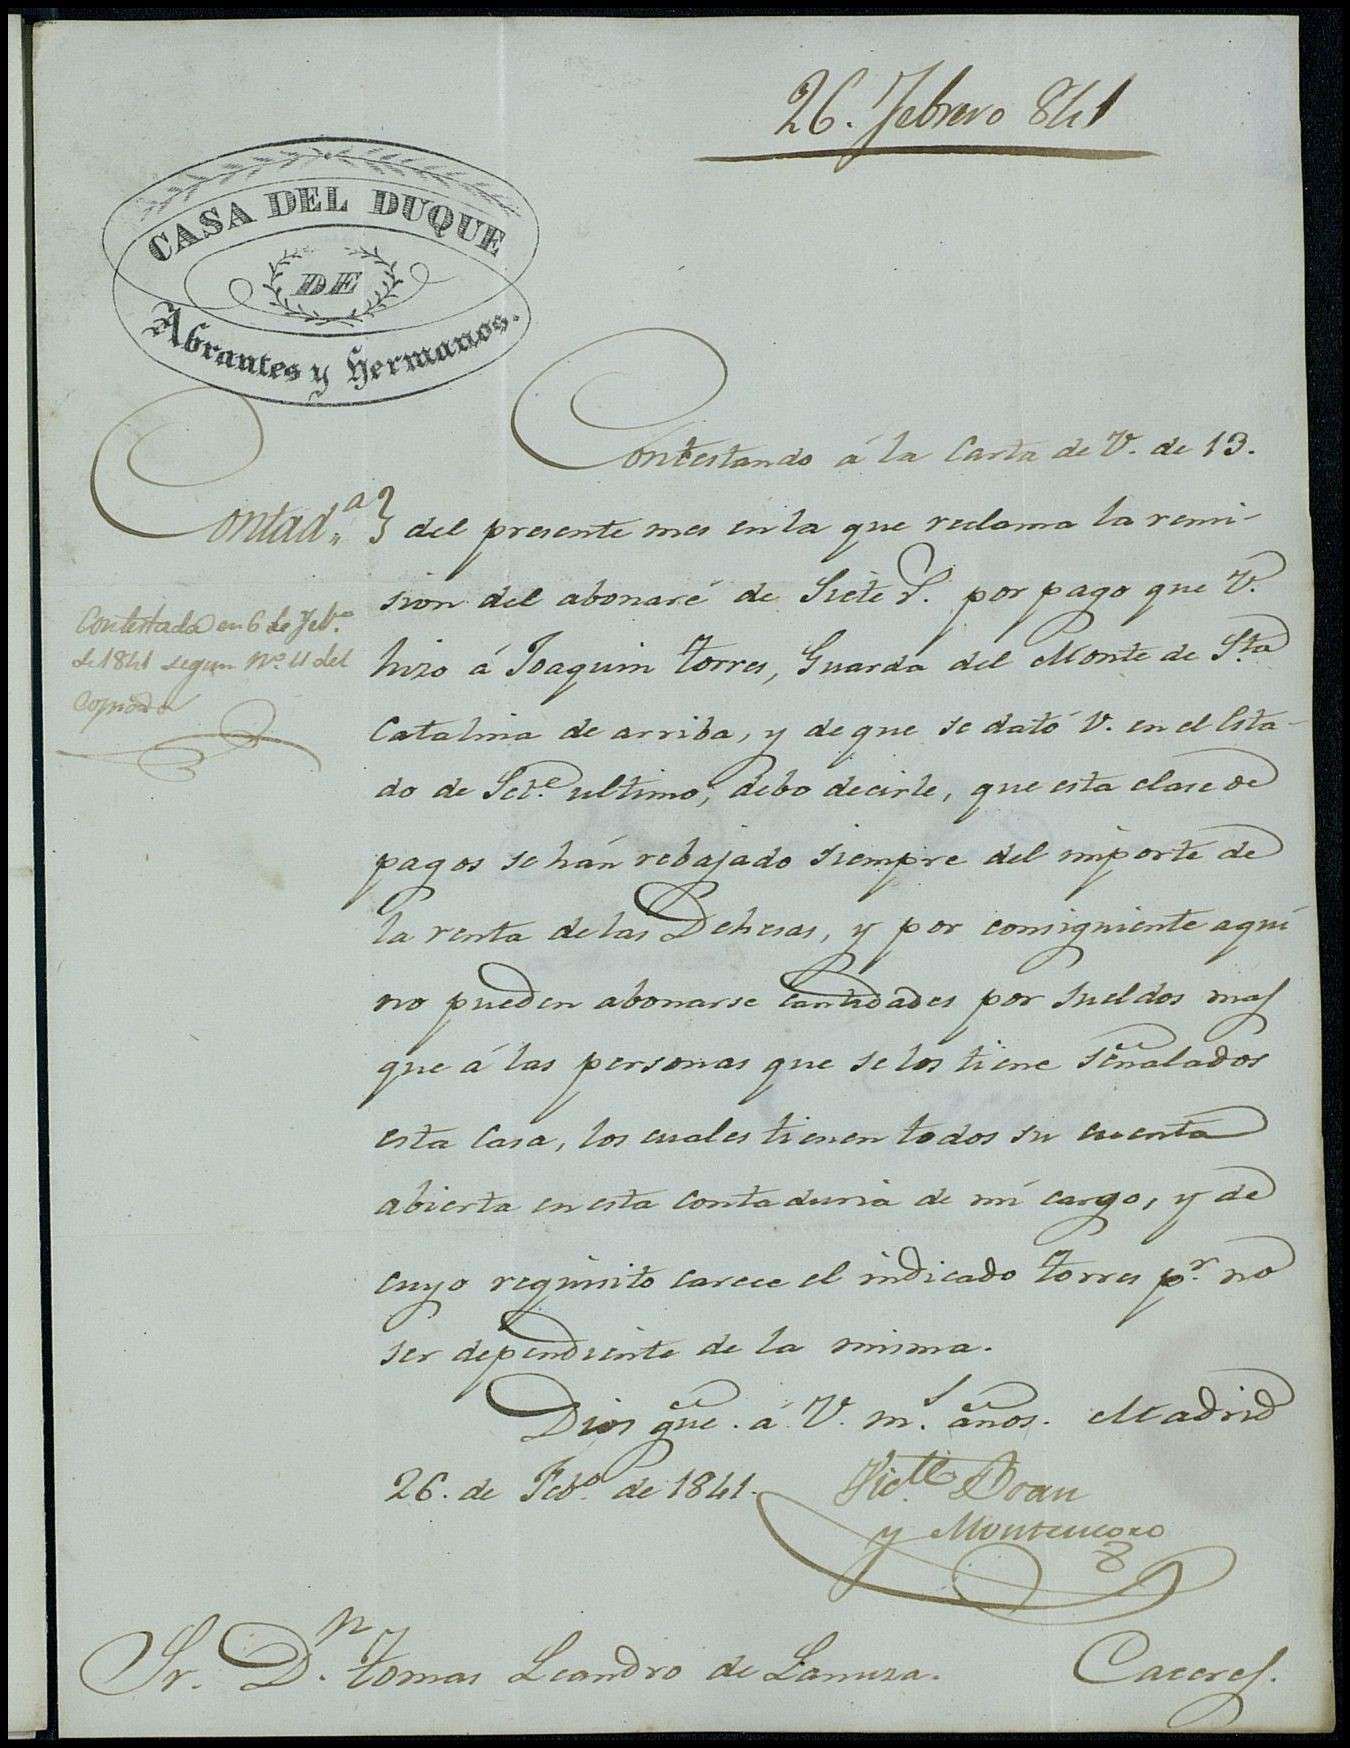 26. Febrero 841
CASA DEL DUQUE
DE
Abrantes y Hermanos.
Contestando á la Carta de V. de 13.
Contad.ª } del presente mes en la que reclama la remi-
sion del abonaré de Siete r.s por pago que V.
hizo á Joaquin Torres, Guarda del Monte de Sta
Catalina de arriba, y de que se dató V. en el Esta-
do de Set.e ultimo, debo decirle, que esta clase de
pagos se hán rebajado siempre del importe de
la renta de las Dehesas, y por consiguiente aquí
no pueden abonarse cantidades por sueldos mas
que á las personas que se los tiene señalados
esta Casa, los cuales tienen todos su cuenta
abierta en esta contaduria de mi cargo, y de
cuyo requisito carece el indicado Torres p.r no
ser dependiente de la misma.
Contestada en 6 de Feb.o
de 1841 segun N.o 11 del
Copiador
Dios gue. á V. m.s años. Madrid
26. de Feb.o de 1841.
y Montenegro
Sr. D.n Tomas Leandro de Lanuza. Caceres.